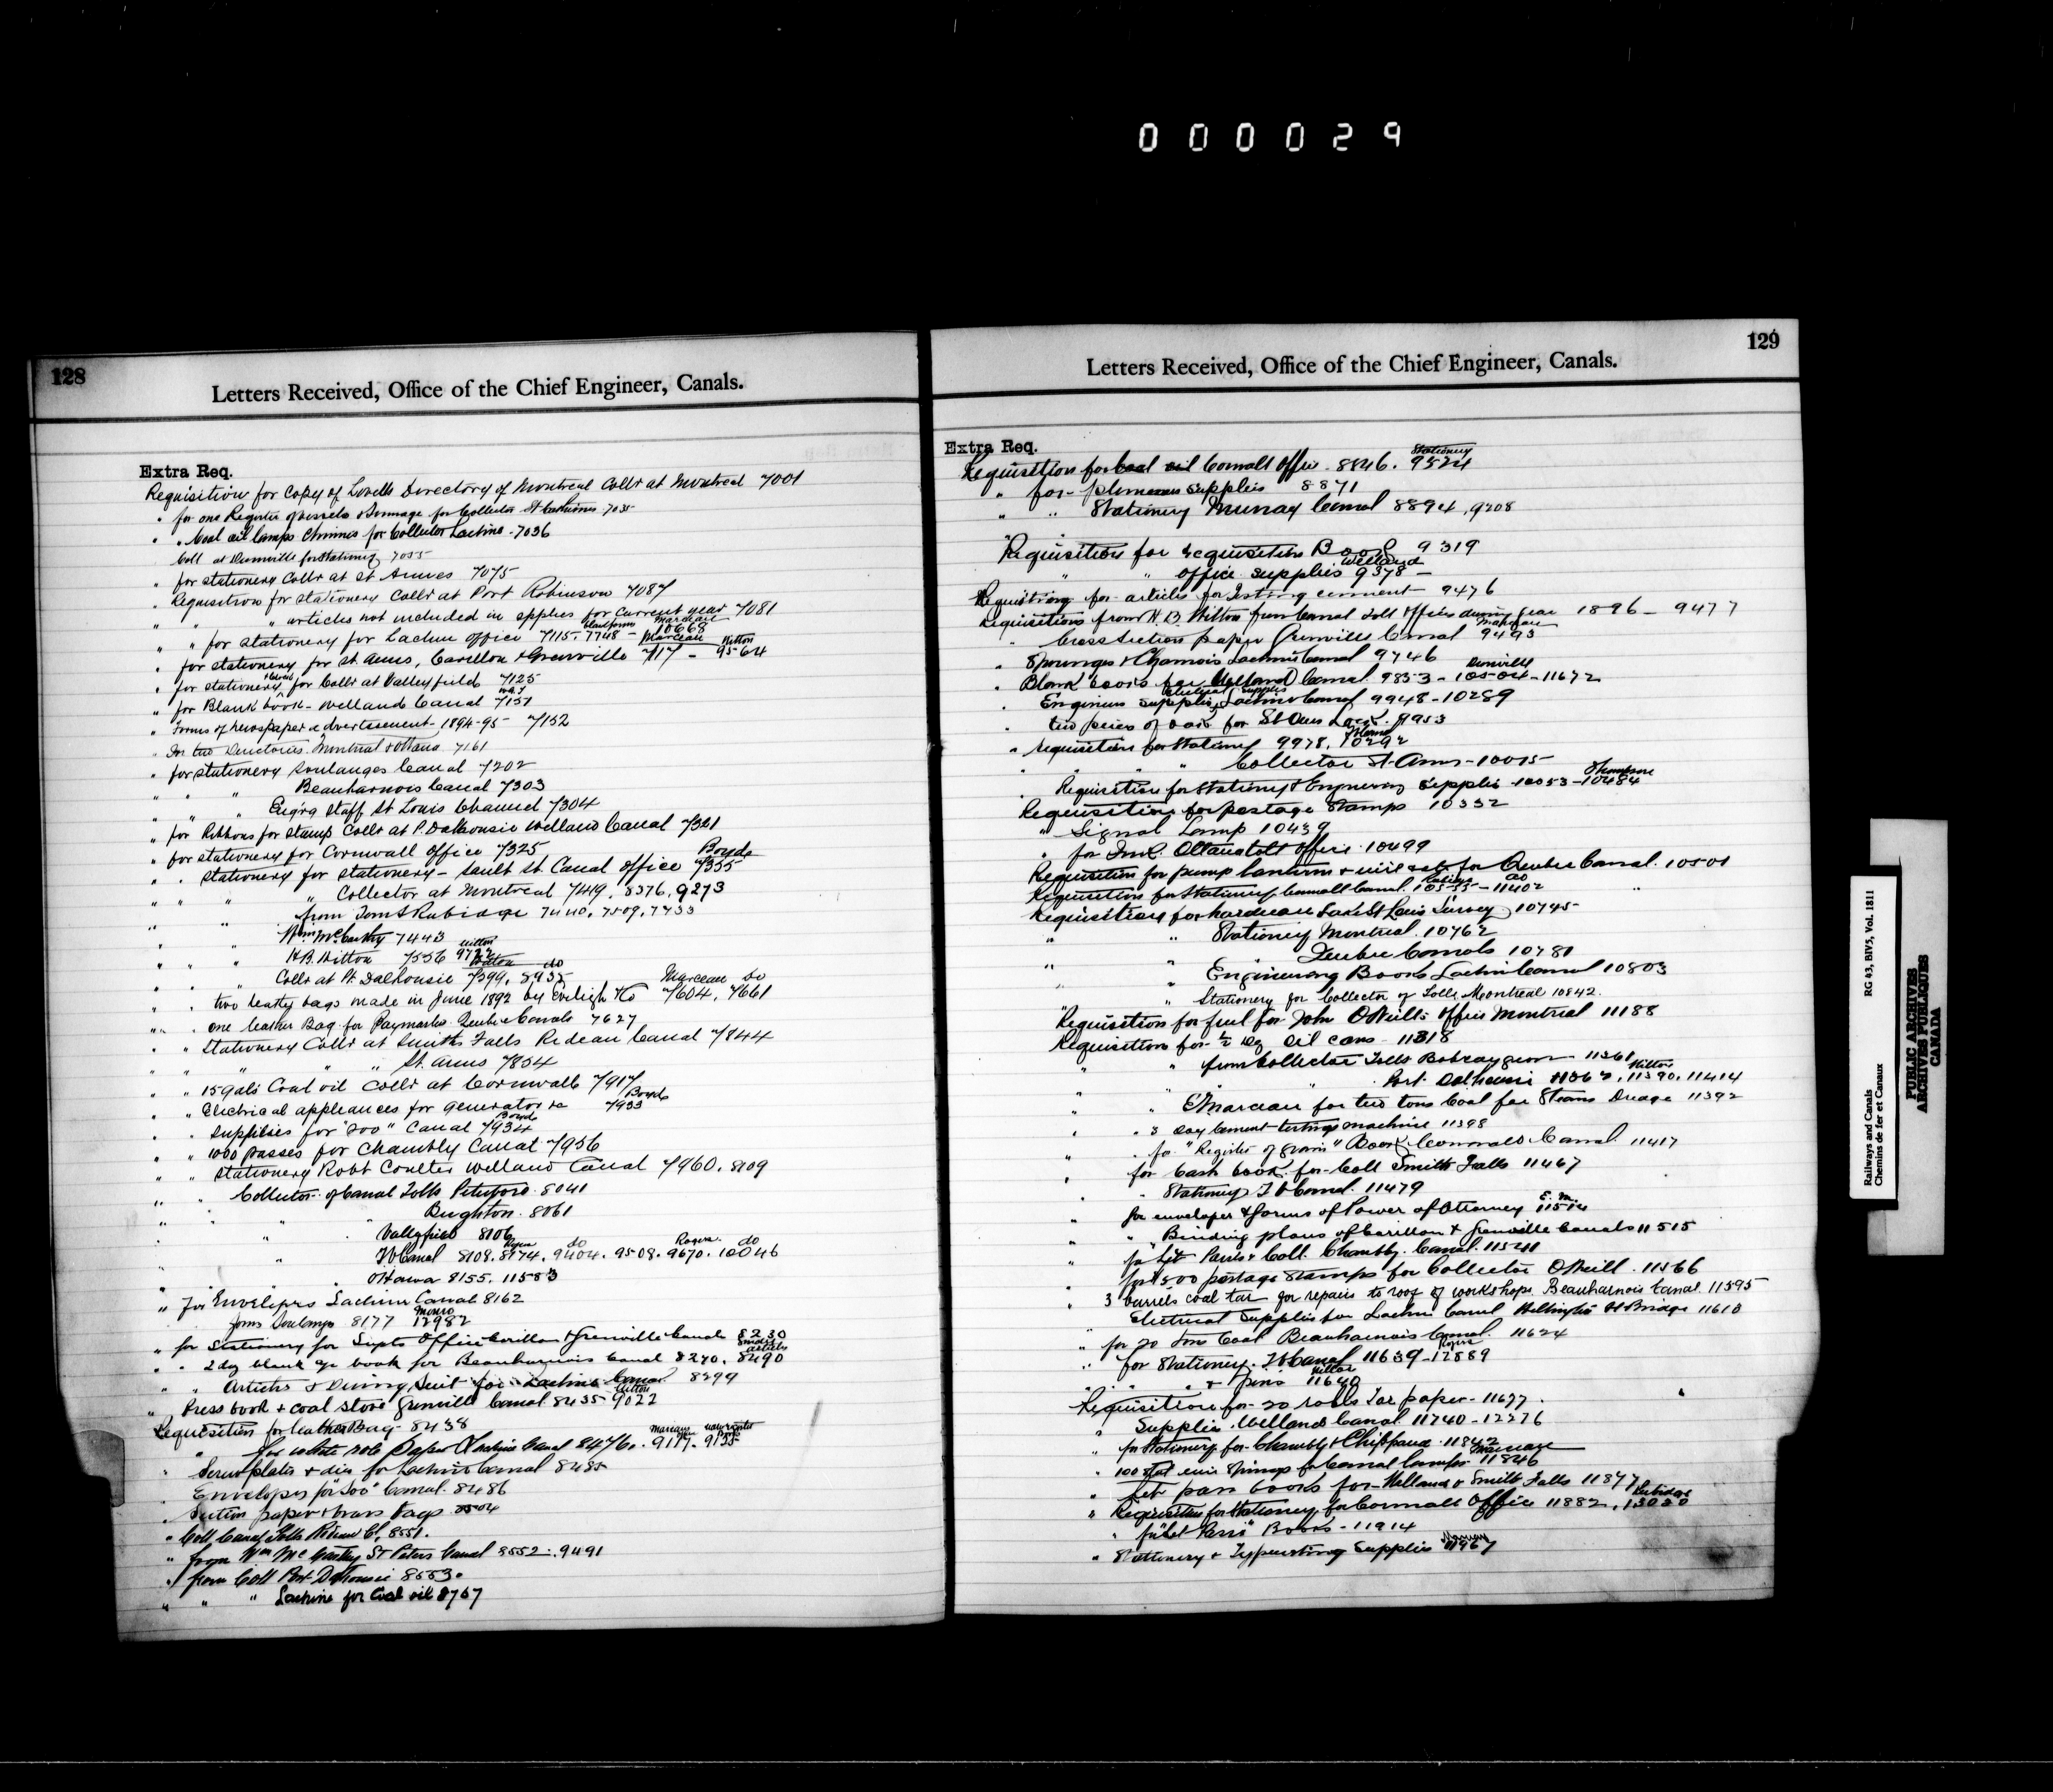 000029
128
Letters Received, Office of the Chief Engineer, Canals.
Extra Req.
Requisition for Copy of Lovells Directory of Montreal Collr at Montreal 7001
" for one Register of vessels & tonnage for Collector St Catharines 7035
" " Coal oil lamps Chimnies for Collector Lachine - 7036
Coll at Dunnville for Stationery 7055
" for stationery Collr at St Annes 7075
" Requisition for stationery Collr at Port Robinson 7087
" " " articles not included in spplies for Current year 7081
Marceau
" " for stationery for Lachine office 7115. 7748 - 10668
Marceau Hitton
" for stationery for St. Anns, Carillon & Grenville 717 - 9564
" for stationery for Collr at Valleyfield 7125
" for Blank book - Welland Canal 7151
" Forms of newspaper advertisement 1894-95 7152
" for two Directories Montreal & Ottawa 7161
" for stationery Soulanges Canal 7202
" " " Beauharnois Canal 7303
" " " Eng'rg Staff St Louis Channel 7304
" for Ribbons for stamp Collr at P. Dalhousie Welland Canal 7321
" for stationery for Cornwall Office 7325
Boyde
" " stationery for stationery - Sault St. Canal office 7355
" " " " Collector at Montreal 7419. 8376. 9273
" " from Tom S Rubidge 7440. 7509. 7433
" " Wm McCarthy 7443
" " " H.B. Witton 7556
" " Collr at Pt. Dalhousie 7599. 8935
Marceau Do
" " two leathr bags made in June 1892 by 7604. 7661
" " one leather Bag for Paymaster Quebec Canals 7627
" " Stationery Collr at Smiths Falls Rideau Canal 7844
" " " " St. Anns 7854
" " 15 gals Coal oil Collr at Cornwall 7917
Boyde
" " Electrical appliances for generator &c 7933
" " Supplies for "Soo" Canal 7934
" " 1000 passes for Chambly Canal 7956
" " stationery Robt Coulter Welland Canal 7960. 8109
" " Collector of Canal Tolls Peterboro 8041
" " " Brighton 8061
" " Valleyfield 8106
Rogers do
" " Canal 8108. 8174. 9404. 9508. 9670. 10046
" Ottawa 8155. 11583
" for Envelopes Lachine Canal 8162
Munro
forms Soulanges 8177 12982
" for Stationery for Supts Office Carillon & Grenville Canals 8230
" " 2 day blank book for Beauharnois Canal 8270. 8490
" " Articles & Diving Suit for Lachine Canal 8299
" Press book & coal stove Grenville Canal 8435 - 9022
Requisition for leather Bag - 8438
" for white note Paper Lachine Canal 8476. 9117. 9135
" Screw plates & dies for Lachine Canal 8485
" Envelopes for "Soo" Canal 8486
" Section paper & brass tags 8504
" Coll. Canal Tolls Rideau C. 8551.
" from Wm McCarthy St Peters Canal 8552. 9491
" from Coll Port Dalhousie 8553.
" " " Lachine for Coal oil 8767
129
Letters Received, Office of the Chief Engineer, Canals.
Extra Req.
Stationery
Requisition for Coal oil Cornwall Office - 8846. 9524
" for supplies 8871
" " Stationery Murray Canal 8894. 9208
Requisition for requisition Book 9319
Welland
" " office supplies 9378 -
Requisition for articles for Testing cement - 9476
Requisitions from H.B. Witton from Canal Toll Offices during year 1896 - 9477
Marceau
" Cross section paper Grenville Canal 9493
" Spounges & Chamois Lachine Canal 9746
" Blank books for Welland Canal 9853 - 10504 - 11672
Electrical Supplies
" Engineers supplies Lachine Canal 9948 - 10289
" two peices of oak for St Anns Lock. 9953
" requisition for Stationery 9978. 10292
" " " Collector St. Anns - 10015
Thompson
" Requisition for Stationery & Engineering Supplies - 10053 - 10484
Requisition for postage Stamps 10332
" Signal Lamp 10439
" for Ottawa toll office - 10499
Requisition for pump lantern & for Quebec Canal. 10501
do
Requisition for Stationery Cornwall Canal. 10535 - 11402
Requisition for hardware Lake St Louis Survey 10745
" " Stationery Montreal. 10762
Quebec Canals 10781
" " Engineering Books Lachine Canal 10803
" " Stationery for Collector of Tolls Montreal 10842.
"Requisition for fuel for John O'Neill's Office Montreal 11188
Requisition for ½ dz Oil cans - 11318
" " from Collector Tolls Bobcaygeon - 11361
Witton
" Port Dalhousie 11362. 11390. 11414
" " E Marceau for two tons Coal for Steam Dredge 11392
" " 3 day Cement testings machine 11398
" " for "Register of grain" Book Cornwall Canal 11417
" for Cash book for Coll Smiths Falls 11467
" Stationery Canal. 11479
" for envelopes & forms of Power of Attorney 11514
" " Binding plans of Carillon & Grenville Canals 11515
" for Let Passes Coll. Chambly Canal. 11541
" for 1500 postage Stamps for Collector O'Neill. 11566
" 3 barrels coal tar for repairs to roof of workshops Beauharnois Canal. 11595
Electrical Supplies for Lachine Canal Wellington St Bridge 11610
" for 20 tons Coal Beauharnois Canal. 11624
Rogers
" for Stationery. Canal 11639 - 12889
" " " & pens 11640
Requisition for 20 rolls Tar paper - 11677.
" Supplies Welland Canal 11740 - 12276
" for Stationery for Chambly & Chippawa. 11842
Marceau
" 100 Springs for Canal Lamps 11846
" Let pass books for Welland & Smiths Falls 11877
Rubidge
" Requisition for Stationery for Cornwall Office 11882. 13020
" for "Let Pass" Books - 11914
Murray
" Stationery & Typewriting Supplies 11967
Railways and Canals
Chemins de fer et Canaux
RG 43, BIV5, Vol. 1811
PUBLIC ARCHIVES
ARCHIVES PUBLIQUES
CANADA